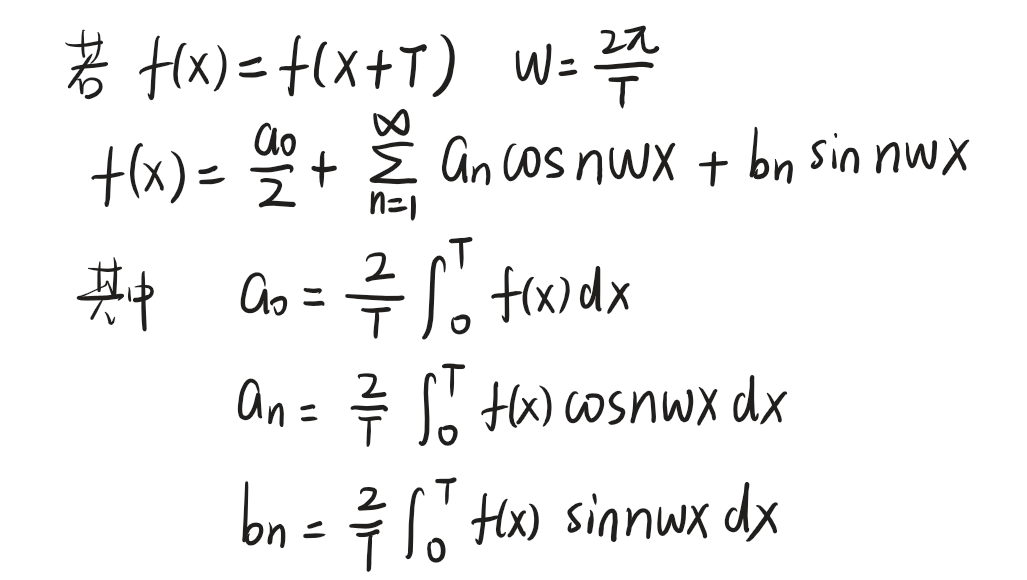 若 f(x) = f(x+T) w = 2π/T
f(x) = a₀/2 + ∑_{n=1}^{∞} aₙ cos nwx + bₙ sin nwx
其中 a₀ = 2/T ∫₀ᵀ f(x) dx
aₙ = 2/T ∫₀ᵀ f(x) cos nwx dx
bₙ = 2/T ∫₀ᵀ f(x) sin nwx dx